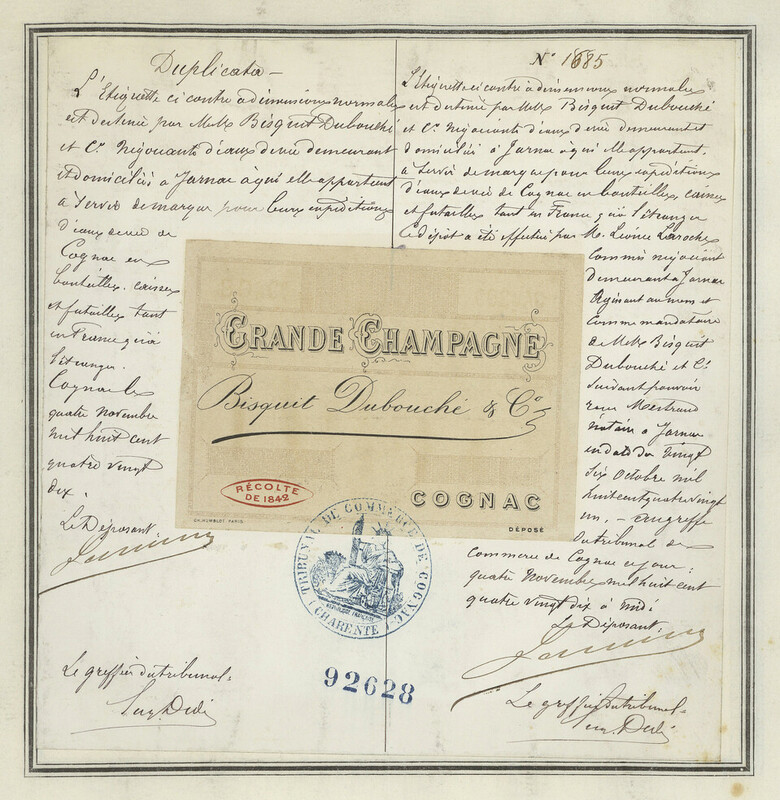 Duplicata -
L'Etiquette ci contre a dimensions normales
est destinée par Mels Bisquit Dubouché
et Cie Négociants d'eaux de vie demeurant
et domiciliés à Jarnac à qui elle appartient
à servir de marque pour leurs expéditions
d'eaux de vie de
Cognac en
bouteilles, caisses
et futailles tant
en France qu'à
l'étranger.
Cognac le
quatre Novembre
mil huit cent
quatre vingt
dix.
Le Déposant
Le greffier du tribunal
N° 1685
L'Etiquette ci contre a dimensions normales
est destinée par Mels Bisquit Dubouché
et Cie Négociants d'eaux de vie demeurant et
domiciliés à Jarnac à qui elle appartient.
à servir de marque pour leurs expéditions
d'eaux de vie de Cognac en bouteilles, caisses
et futailles tant en France qu'à l'étranger
Ce dépôt a été effectué par M. Léonce Laroche
commis négociant
demeurant à Jarnac
Agissant au nom et
comme mandataire
de Mels Bisquit
Dubouché et Cie
suivant pouvoir
notaire à Jarnac
en date du vingt
six Octobre mil
huit cent quatre vingt
un, - au greffe
du tribunal de
commerce de Cognac ce jour:
quatre Novembre mil huit cent
quatre vingt dix à midi
Le Déposant.
Le greffier du tribunal
GRANDE CHAMPAGNE
Bisquit Dubouché & Co
RÉCOLTE
DE 1842
COGNAC
CH. HUMBLOT PARIS
DÉPOSÉ
TRIBUNAL DE COMMERCE DE COGNAC
RÉPUBLIQUE FRANÇAISE
(CHARENTE)
92628